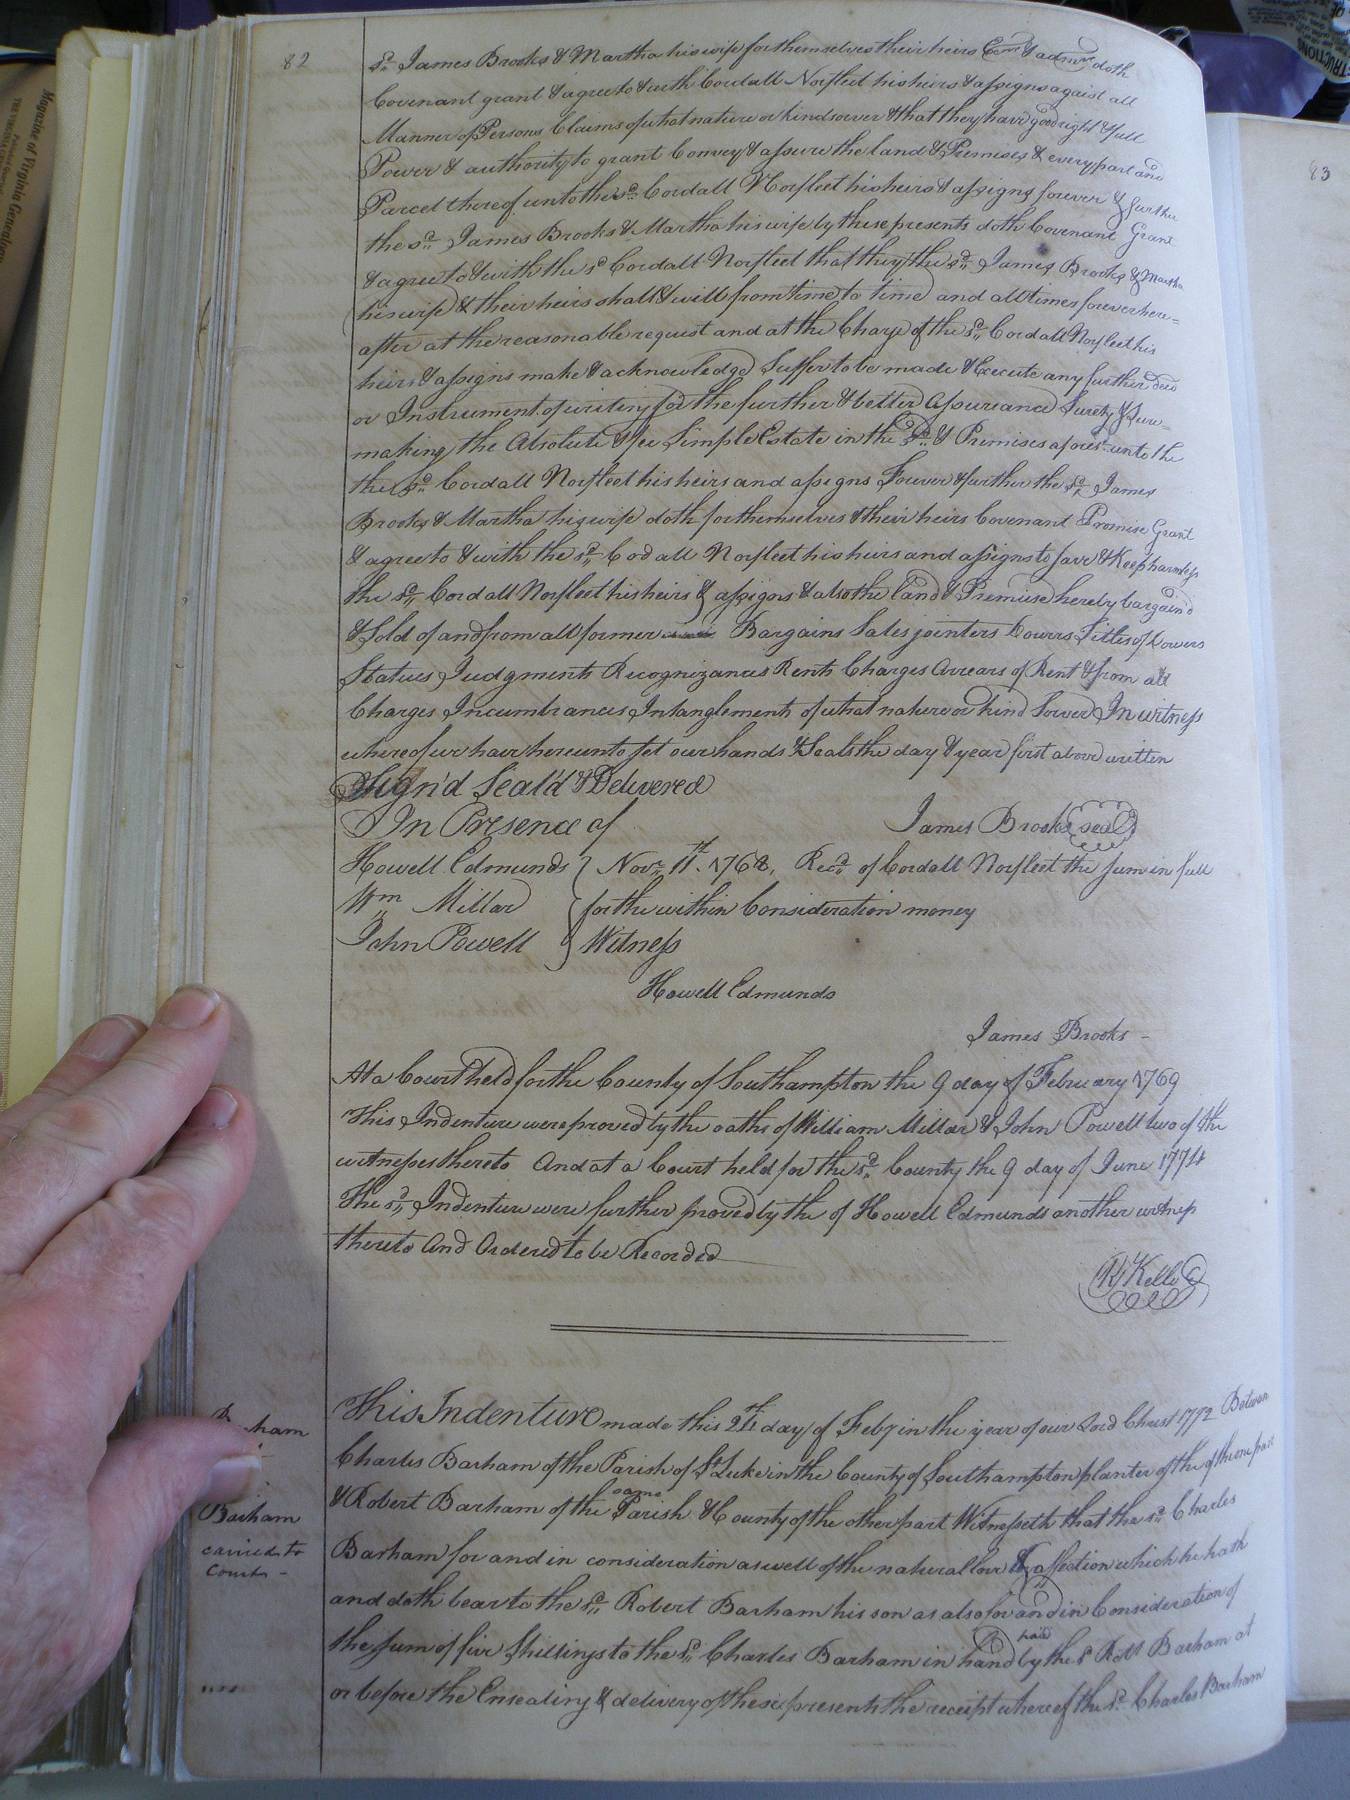 82
sd. James Brooks & Martha his wife for themselves their heirs Exrs & admrs doth
Covenant grant & agree to & with Cordall Norfleet his heirs & assigns against all
Manner of Persons Claims of what nature or kind soever & that they have good right & full
Power & authority to grant Convey & assure the land & Premises & every part and
Parcel thereof unto the sd. Cordall Norfleet his heirs & assigns forever & further
the sd. James Brooks & Martha his wife by these presents doth Covenant Grant
& agree to & with the sd Cordall Norfleet that they the sd. James Brooks & Martha
his wife & their heirs shall & will from time to time and all times forever here=
after at the reasonable request and at the Charge of the sd. Cordall Norfleet his
heirs & assigns make & acknowledge Suffer to be made & Execute any further deed
or Instrument of writing for the further & better Assurance Surety & Sure=
making the Absolute & fee Simple Estate in the sd. & Premises aforesd. unto the
the sd. Cordall Norfleet his heirs and assigns Forever & further the sd. James
Brooks & Martha his wife doth for themselves & their heirs Covenant Promise Grant
& agree to & with the sd. Codall Norfleet his heirs and assigns to save & Keep harmless
the sd. Cordall Norfleet his heirs & assigns & also the land & Premise hereby bargain'd
& Sold of and from all former Bargains Sales jointers Dowers Titles of Dowers
Statues Judgments Recognizances Rents Charges Arrears of Rent & from all
Charges Incumbrances Intanglements of what nature or kind Soever In witness
whereof we have hereunto set our hands & Seals the day & year first above written
Sign'd Seal'd & Delivered
In Presence of
James Brooks seal
Howell Edmunds } Novr. 11th. 1768, Recd. of Cordall Norfleet the sum in full
Wm Millar for the within Consideration money
John Powell } Witness
Howell Edmunds
James Brooks -
At a Court held for the County of Southampton the 9 day of February 1769
This Indenture were proved by the oaths of William Millar & John Powell two of the
witnesses thereto And at a Court held for the sd. County the 9 day of June 1774
The sd. Indenture were further proved by the of Howell Edmunds another witness
thereto And Ordered to be Recorded
R Kello C
This Indenture made this 24th day of Feby in the year of our Lord Christ 1772 Between
Charles Barham of the Parish of St Luke in the County of Southampton planter of the of the one part
& Robert Barham of the same Parish & County of the other part Witnesseth that the sd. Charles
Barham for and in consideration as well of the natural love & affection which he hath
and doth bear to the sd. Robert Barham his son as also for and in Consideration of
the sum of five Shillings to the sd. Charles Barham in hand paid by the s Robt Barham at
or before the Ensealing & delivery of these presents the receipt whereof the sd. Charles Barham
Barham
carried to
Courts -
83
Magazine of Virginia Genealogy